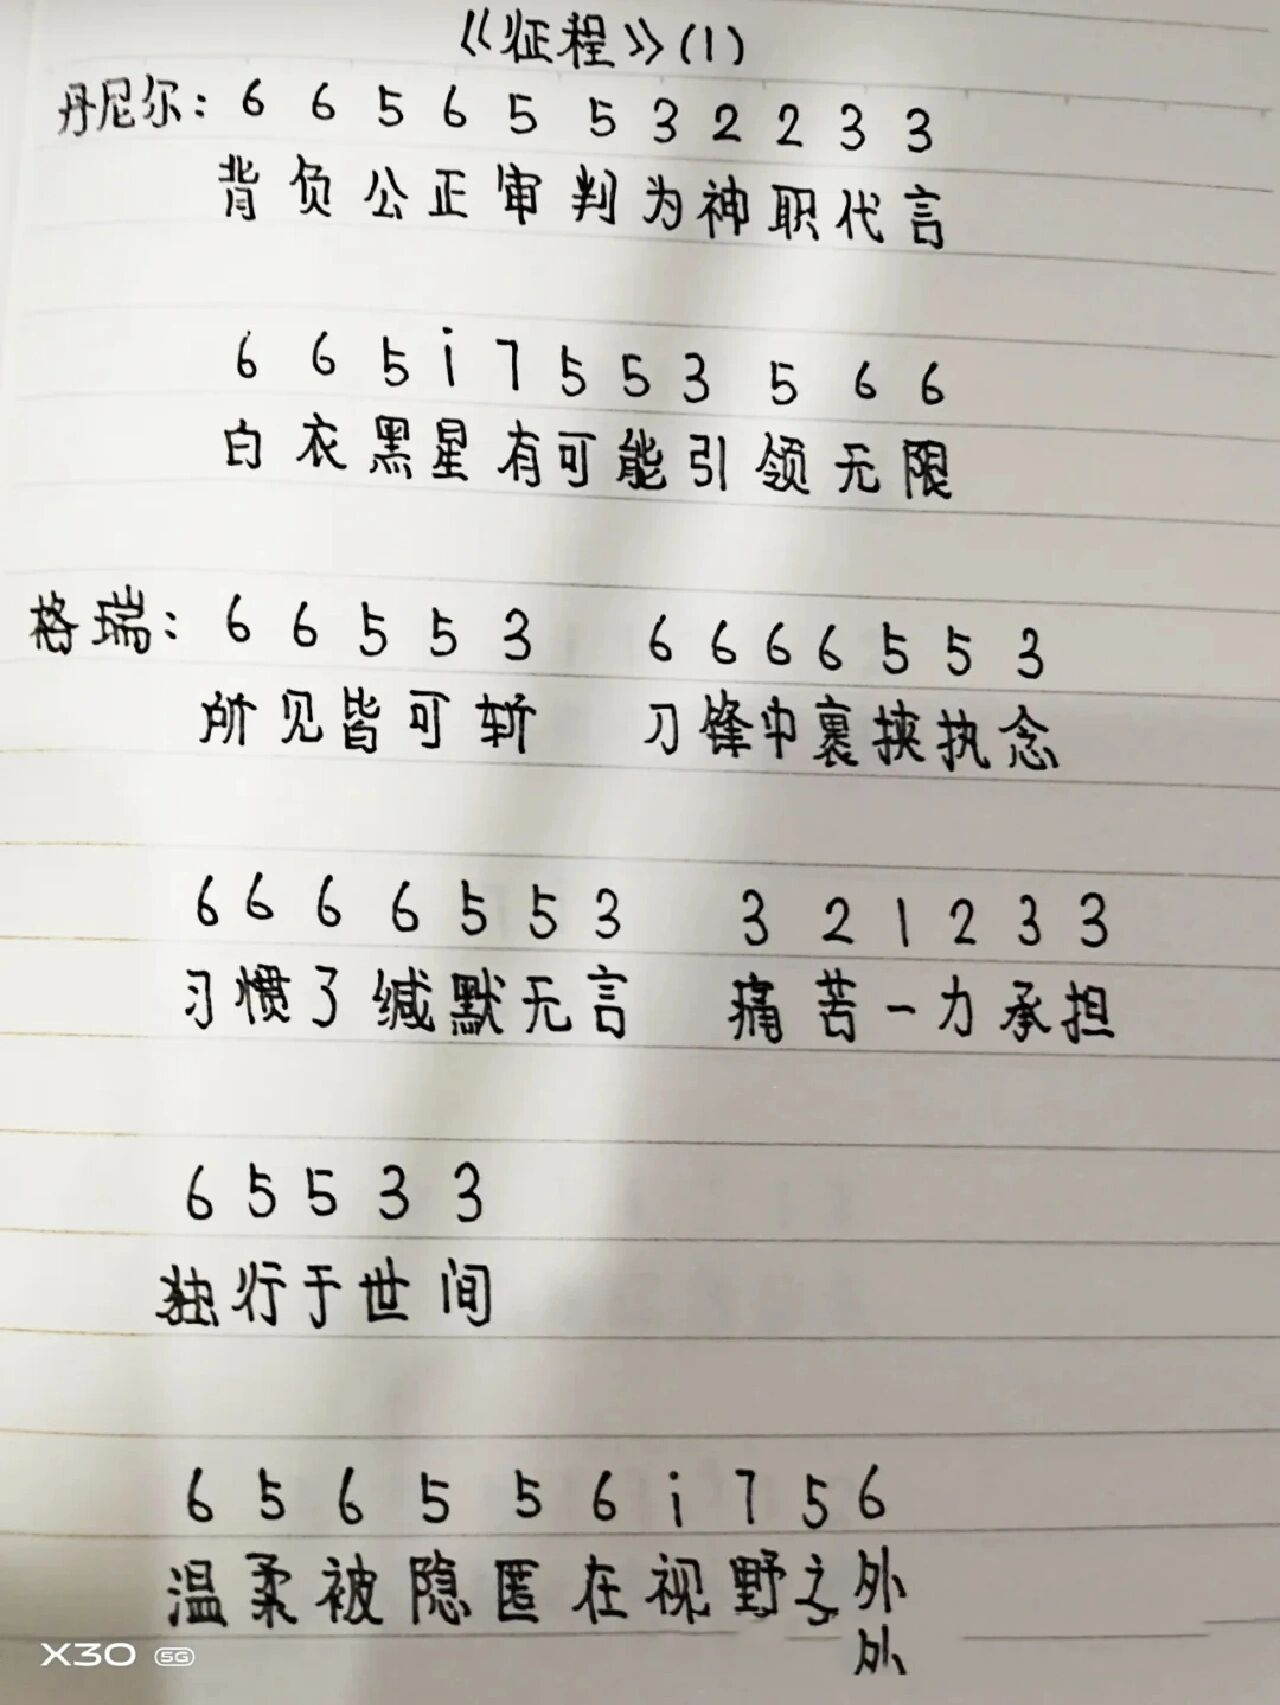 《征程》(1)
丹尼尔: 6 6 5 6 5 5 3 2 2 3 3
背负公正审判为神职代言
6 6 5 i 7 5 5 3 5 6 6
白衣黑星有可能引领无限
格瑞: 6 6 5 5 3 6 6 6 6 5 5 3
所见皆可斩 刀锋中裹挟执念
6 6 6 6 5 5 3 3 2 1 2 3 3
习惯了缄默无言 痛苦一力承担
6 5 5 3 3
独行于世间
6 5 6 5 5 6 i 7 5 6
温柔被隐匿在视野之外
外
X30 5G